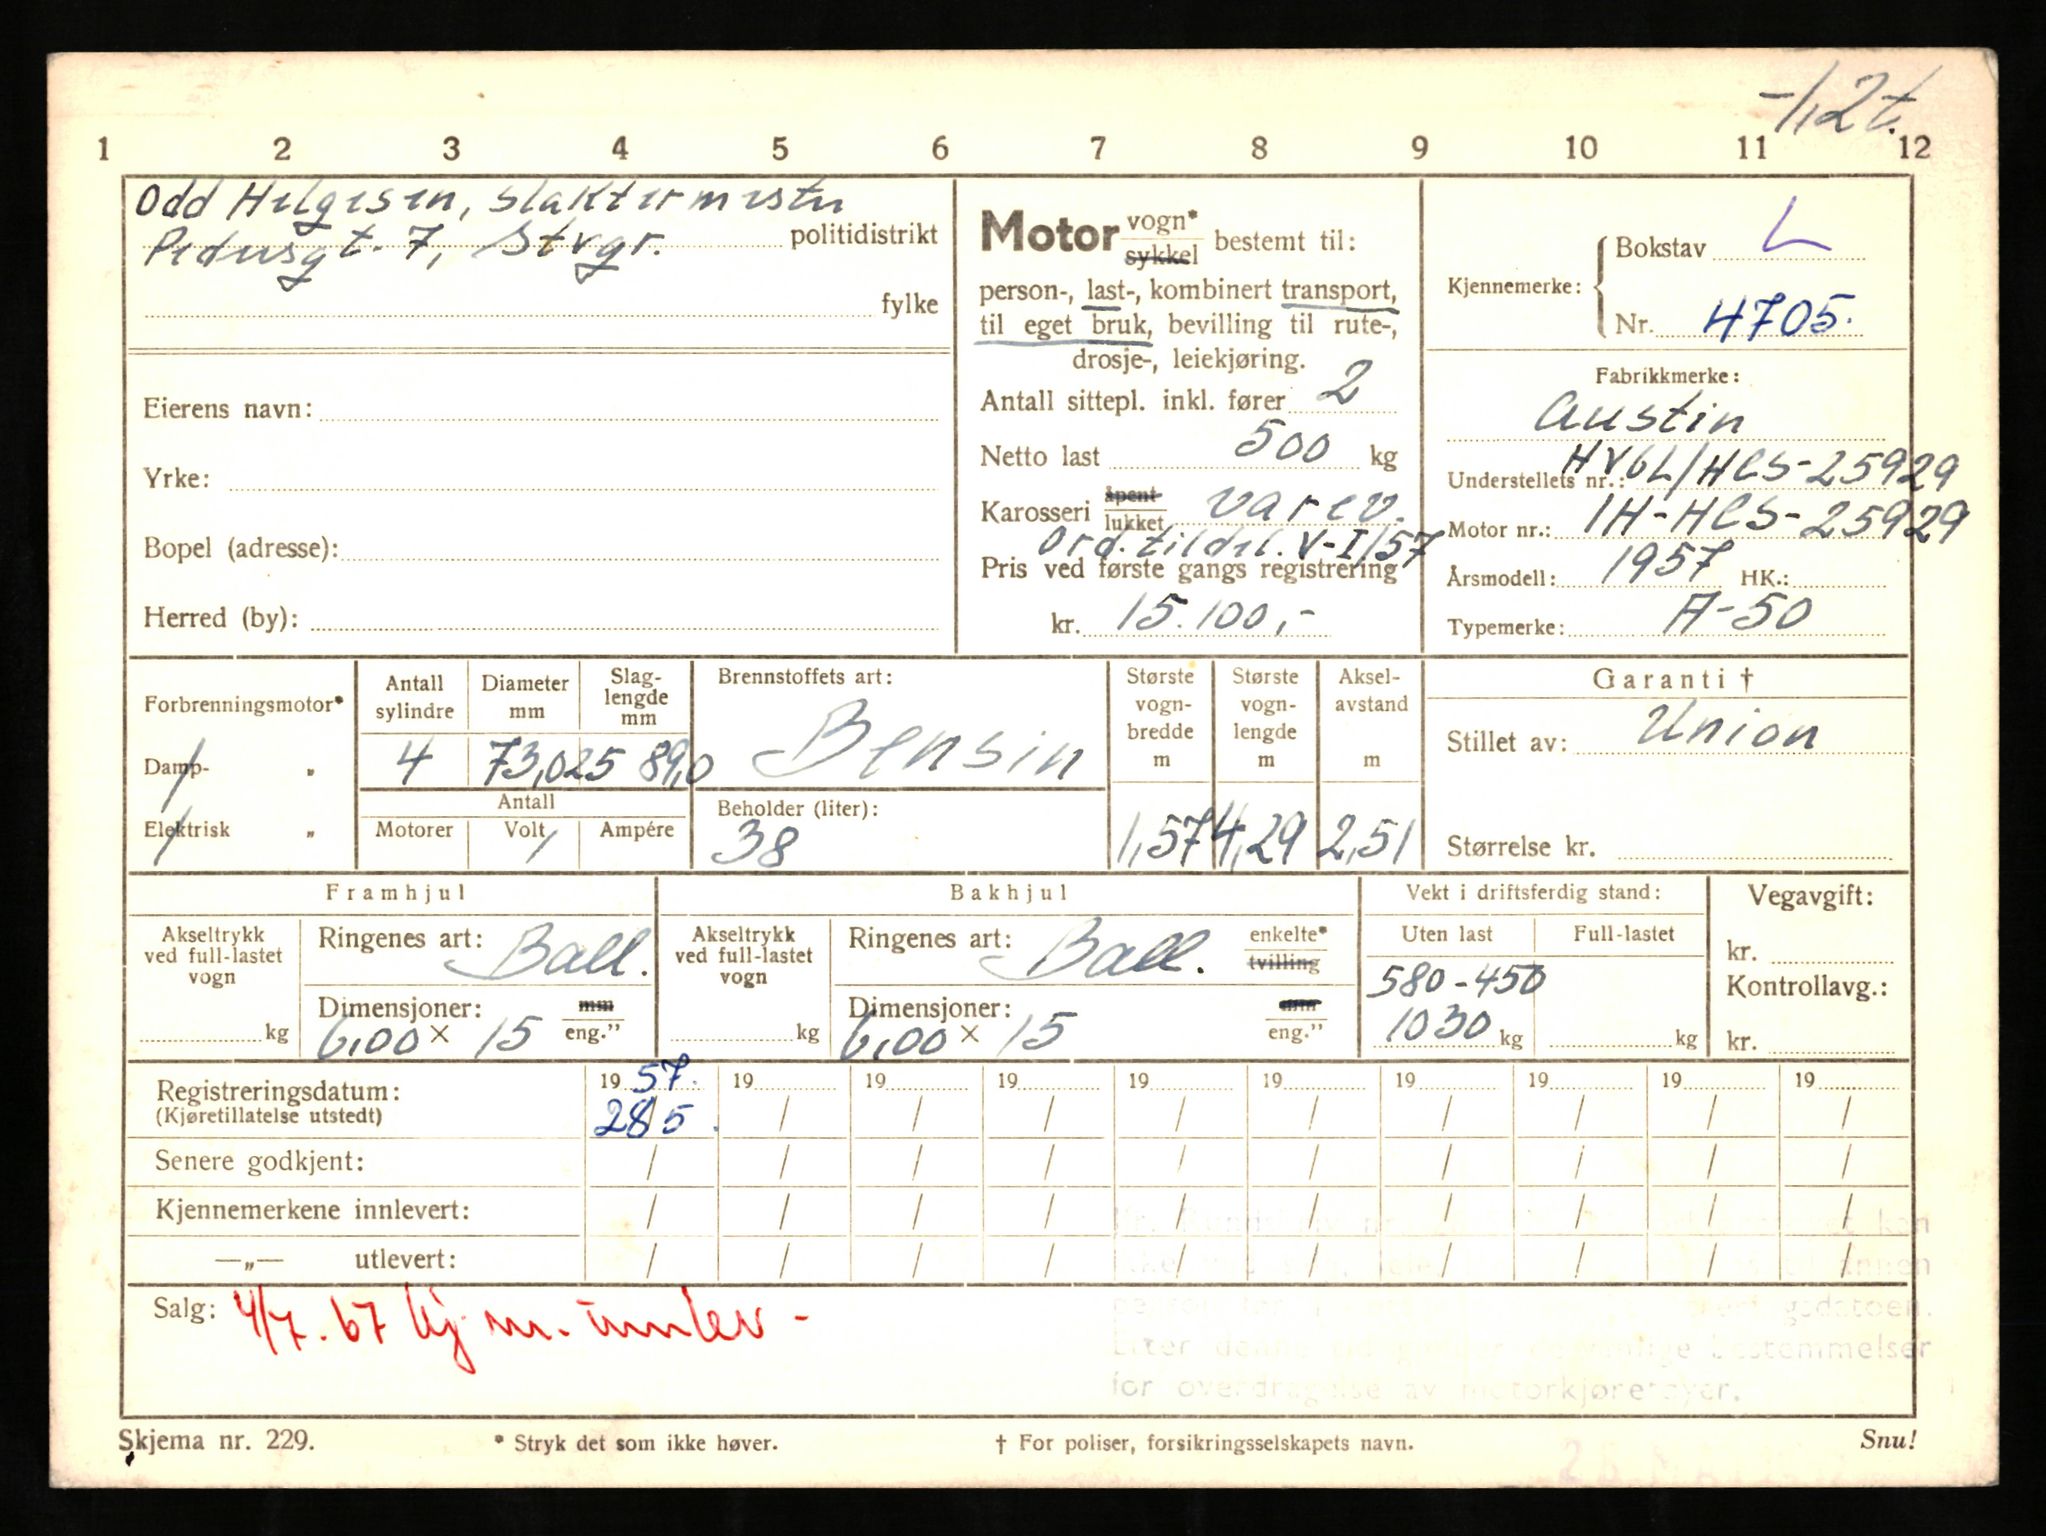 -1,2t.
1 2 3 4 5 6 7 8 9 10 11 12
Odd Helgesen, slaktermester
Pedersgt. 7, Stvgr. politidistrikt
fylke
Eierens navn:
Yrke:
Bopel (adresse):
Herred (by):
Motor vogn* sykkel bestemt til:
person-, last-, kombinert transport,
til eget bruk, bevilling til rute-,
drosje-, leiekjøring.
Antall sittepl. inkl. fører 2
Netto last 500 kg
Karosseri åpent lukket varev.
Ord. tildel. V-I/57
Pris ved første gangs registrering
kr. 15.100,-
Kjennemerke: Bokstav L
Nr. 4705.
Fabrikkmerke:
Austin
Understellets nr.: HV6L/HCS-25929
Motor nr.: 1H-HCS-25929
Årsmodell: 1957 HK.:
Typemerke: A-50
Forbrenningsmotor*
Damp- „
Elektrisk „
Antall sylindre 4
Diameter mm 73,025
Slag-lengde mm 89,0
Antall
Motorer Volt Ampére
Brennstoffets art:
Bensin
Beholder (liter):
38
Største vogn-bredde m 1,57
Største vogn-lengde m 4,29
Aksel-avstand m 2,51
Garanti †
Stillet av: Union
Størrelse kr.
Framhjul
Akseltrykk ved full-lastet vogn
kg
Ringenes art: Ball.
Dimensjoner: mm
6,00 × 15 eng.”
Bakhjul
Akseltrykk ved full-lastet vogn
kg
Ringenes art: Ball. enkelte* tvilling
Dimensjoner: mm
6,00 × 15 eng.”
Vekt i driftsferdig stand:
Uten last Full-lastet
580-450
1030 kg kg
Vegavgift:
kr.
Kontrollavg.:
kr.
Registreringsdatum: 19 57. 19 19 19 19 19 19 19 19 19
(Kjøretillatelse utstedt) 28/5. / / / / / / / / /
Senere godkjent: / / / / / / / / / /
Kjennemerkene innlevert: / / / / / / / / / /
—„— utlevert: / / / / / / / / / /
Salg: 4/7.67 kj.m. innlev -
Etter denne tid gjelder de vanlige bestemmelser
for overdragelse av motorkjøretøyer.
Skjema nr. 229.
* Stryk det som ikke høver.
† For poliser, forsikringsselskapets navn.
Snu!